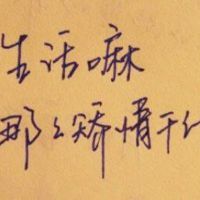 生活嘛
那么矫情干